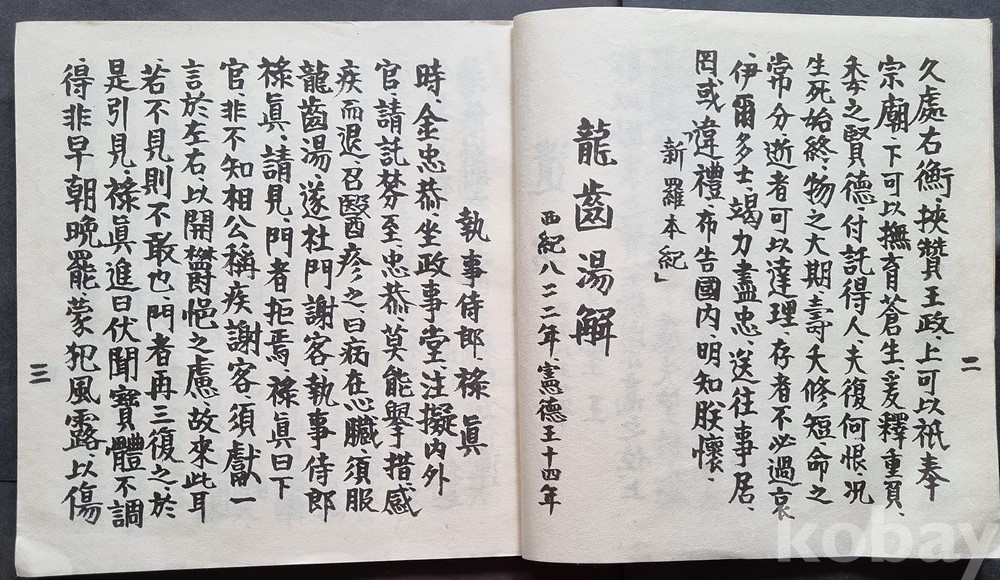 久處右衡、挾贊王政、上可以祇奉
宗廟、下可以撫育蒼生、爰釋重負、
委之賢德、付託得人、夫復何恨、况
生死始終、物之大期、壽夭修短、命之
常分、逝者可以達理、存者不必過哀
伊爾多士、竭力盡忠、送往事居、
罔或違禮、布告國內、明知朕懷、
新羅本紀」
龍齒湯解
西紀八二二年、憲德王十四年
二
執事侍郎、祿眞
時、金忠恭、坐政事堂、注擬內外
官、請託棼至、忠恭莫能擧措、感
疾而退、召醫疹之、曰病在心臟、須服
龍齒湯、遂杜門謝客、執事侍郎
祿眞、請見、門者拒焉、祿眞曰下
官、非不知相公稱疾謝客、須獻一
言於左右、以開欝悒之慮故來此耳
若不見則不敢也、門者再三復之、於
是引見、祿眞進曰伏聞寶體不調
得非早朝晩罷、蒙犯風露、以傷
三
kobay